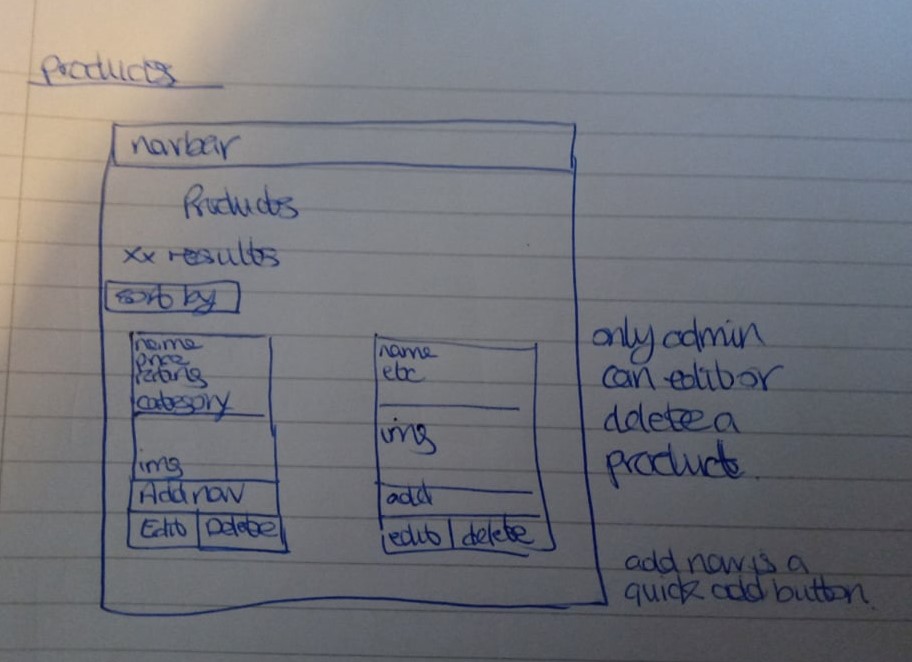 Products
navbar
Products
xx results
sort by
name
price
rating
category
img
Add now
Edit Delete
name
etc
img
add
edit delete
only admin
can edit or
delete a
product.
add now is a
quick add button.